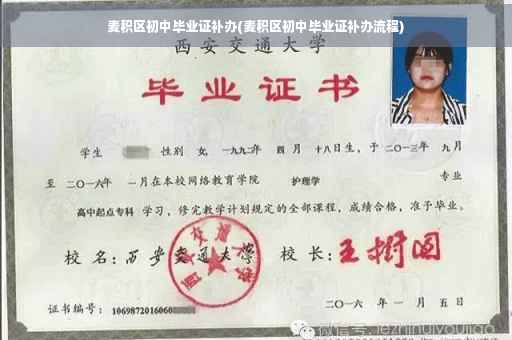 麦积区初中毕业证补办(麦积区初中毕业证补办流程)
西安交通大学
毕业证书
学生 性别 女, 一九九二年 四 月 十八日生, 于 二〇一三年 九月
至 二〇一六年 一月在本校网络教育学院 护理学 专业
高中起点专科 学习, 修完教学计划规定的全部课程, 成绩合格, 准予毕业。
校 名: 西安交通大学 校 长: 王树国
证书编号: 1069872016060
二〇一六 年 一 月 五 日
微信号: jiezhihuiyoujiao